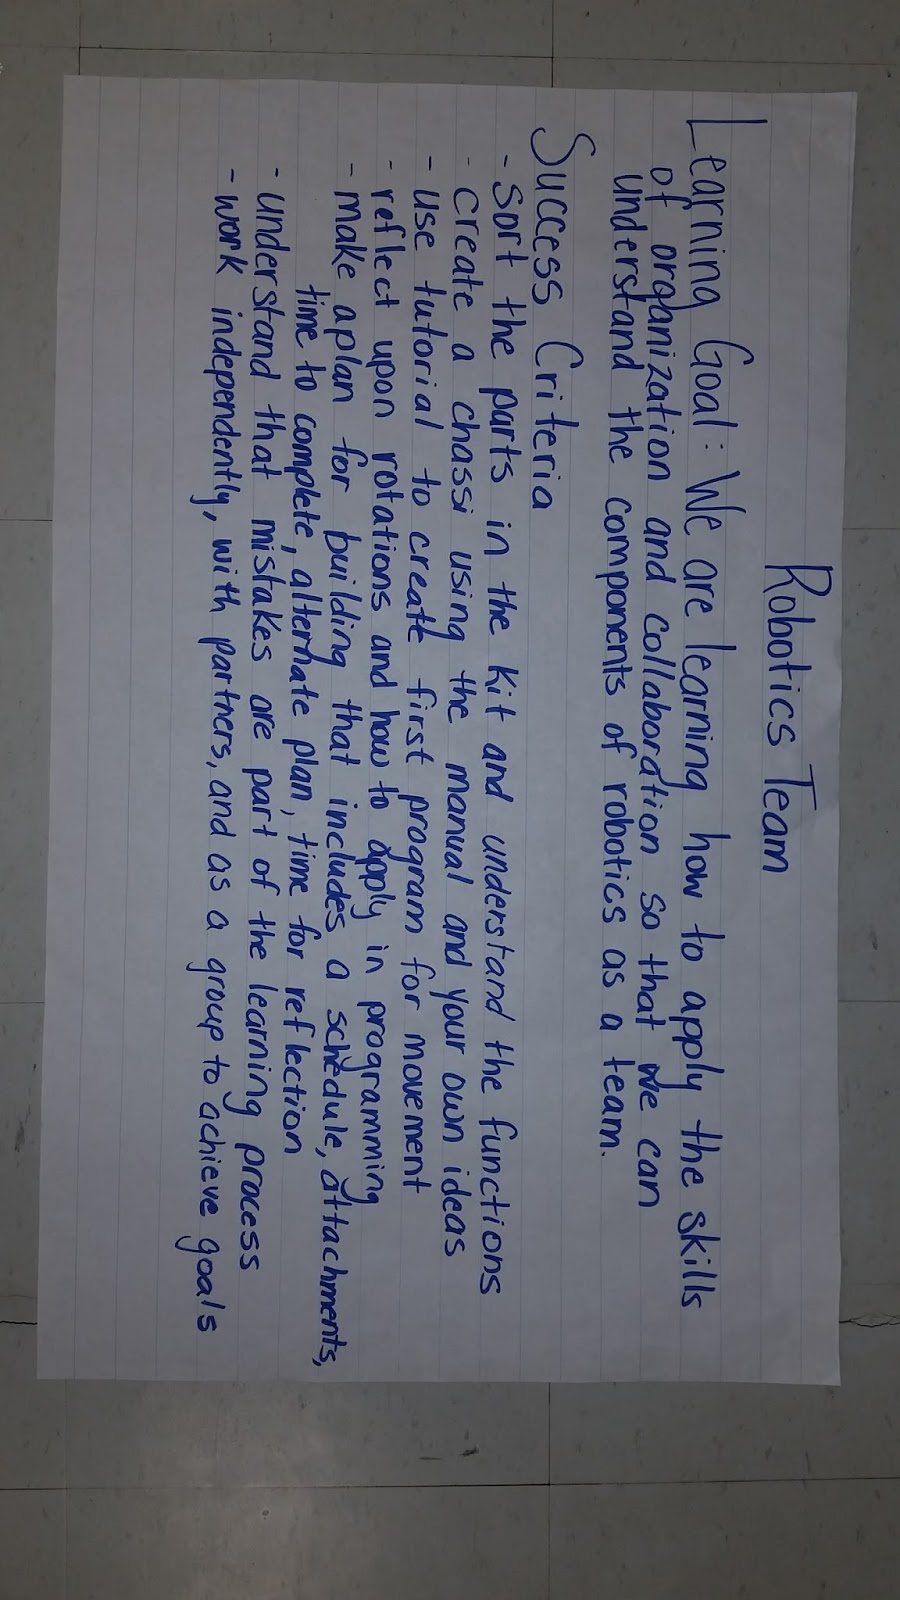 Robotics Team
Learning Goal: We are learning how to apply the skills
of organization and collaboration so that we can
understand the components of robotics as a team.
Success Criteria
- Sort the parts in the kit and understand the functions
- create a chassi using the manual and your own ideas
- use tutorial to create first program for movement
- reflect upon rotations and how to apply in programming
- make a plan for building that includes a schedule, attachments,
time to complete, alternate plan, time for reflection
- understand that mistakes are part of the learning process
- work independently, with partners, and as a group to achieve goals